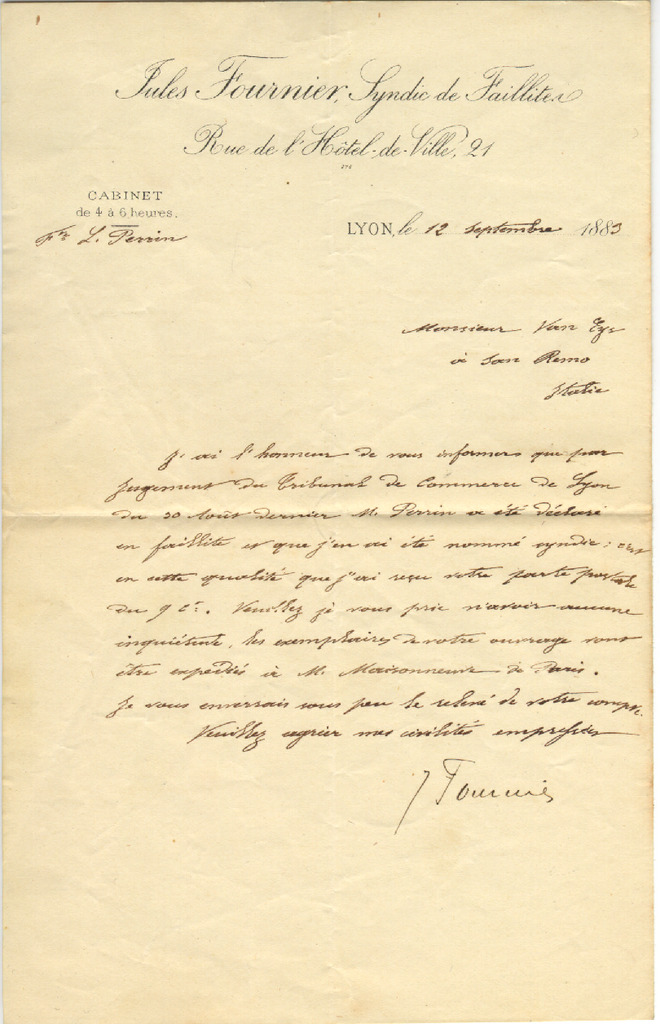 Jules Fournier, Syndic de Faillites
Rue de l'Hôtel-de-Ville, 21
CABINET
de 4 à 6 heures.
Fte L. Perrin
LYON, le 12 septembre 1883
Monsieur Van Eys
à San Remo
Italie
J'ai l'honneur de vous informer que par
jugement du Tribunal de Commerce de Lyon
du 30 Août dernier M. Perrin a été déclaré
en faillite et que j'en ai été nommé syndic : c'est
en cette qualité que j'ai reçu votre carte postale
du 9 ct. Veuillez je vous prie n'avoir aucune
inquiétude, les exemplaires de votre ouvrage vont
être expédiés à M. Maisonneuve de Paris.
Je vous enverrais sous peu le relevé de votre compte.
Veuillez agréer mes civilités empressées
J Fournier